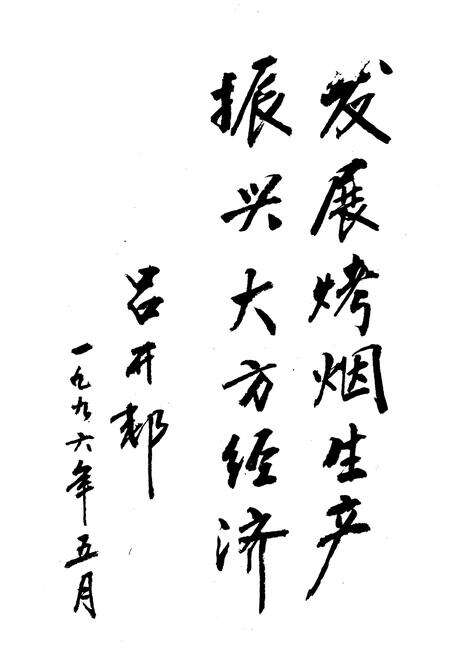 发展烤烟生产
振兴大方经济
吕开邦
一九九六年五月